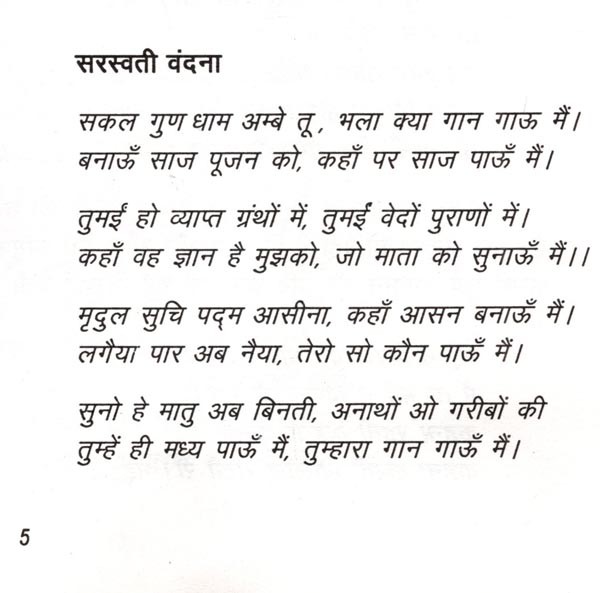 सरस्वती वंदना
सकल गुण धाम अम्बे तू, भला क्या गान गाऊ मैं।
बनाऊँ साज पूजन को, कहाँ पर साज पाऊँ मैं।
तुमइं हो व्याप्त ग्रंथों में, तुमइं वेदों पुराणों में।
कहाँ वह ज्ञान है मुझको, जो माता को सुनाऊँ मैं।।
मृदुल सुचि पद्म आसीना, कहाँ आसन बनाऊँ मैं।
लगैया पार अब नैया, तेरो सो कौन पाऊँ मैं।
सुनो हे मातु अब बिनती, अनाथों ओ गरीबों की
तुम्हें ही मध्य पाऊँ मैं, तुम्हारा गान गाऊँ मैं।
5